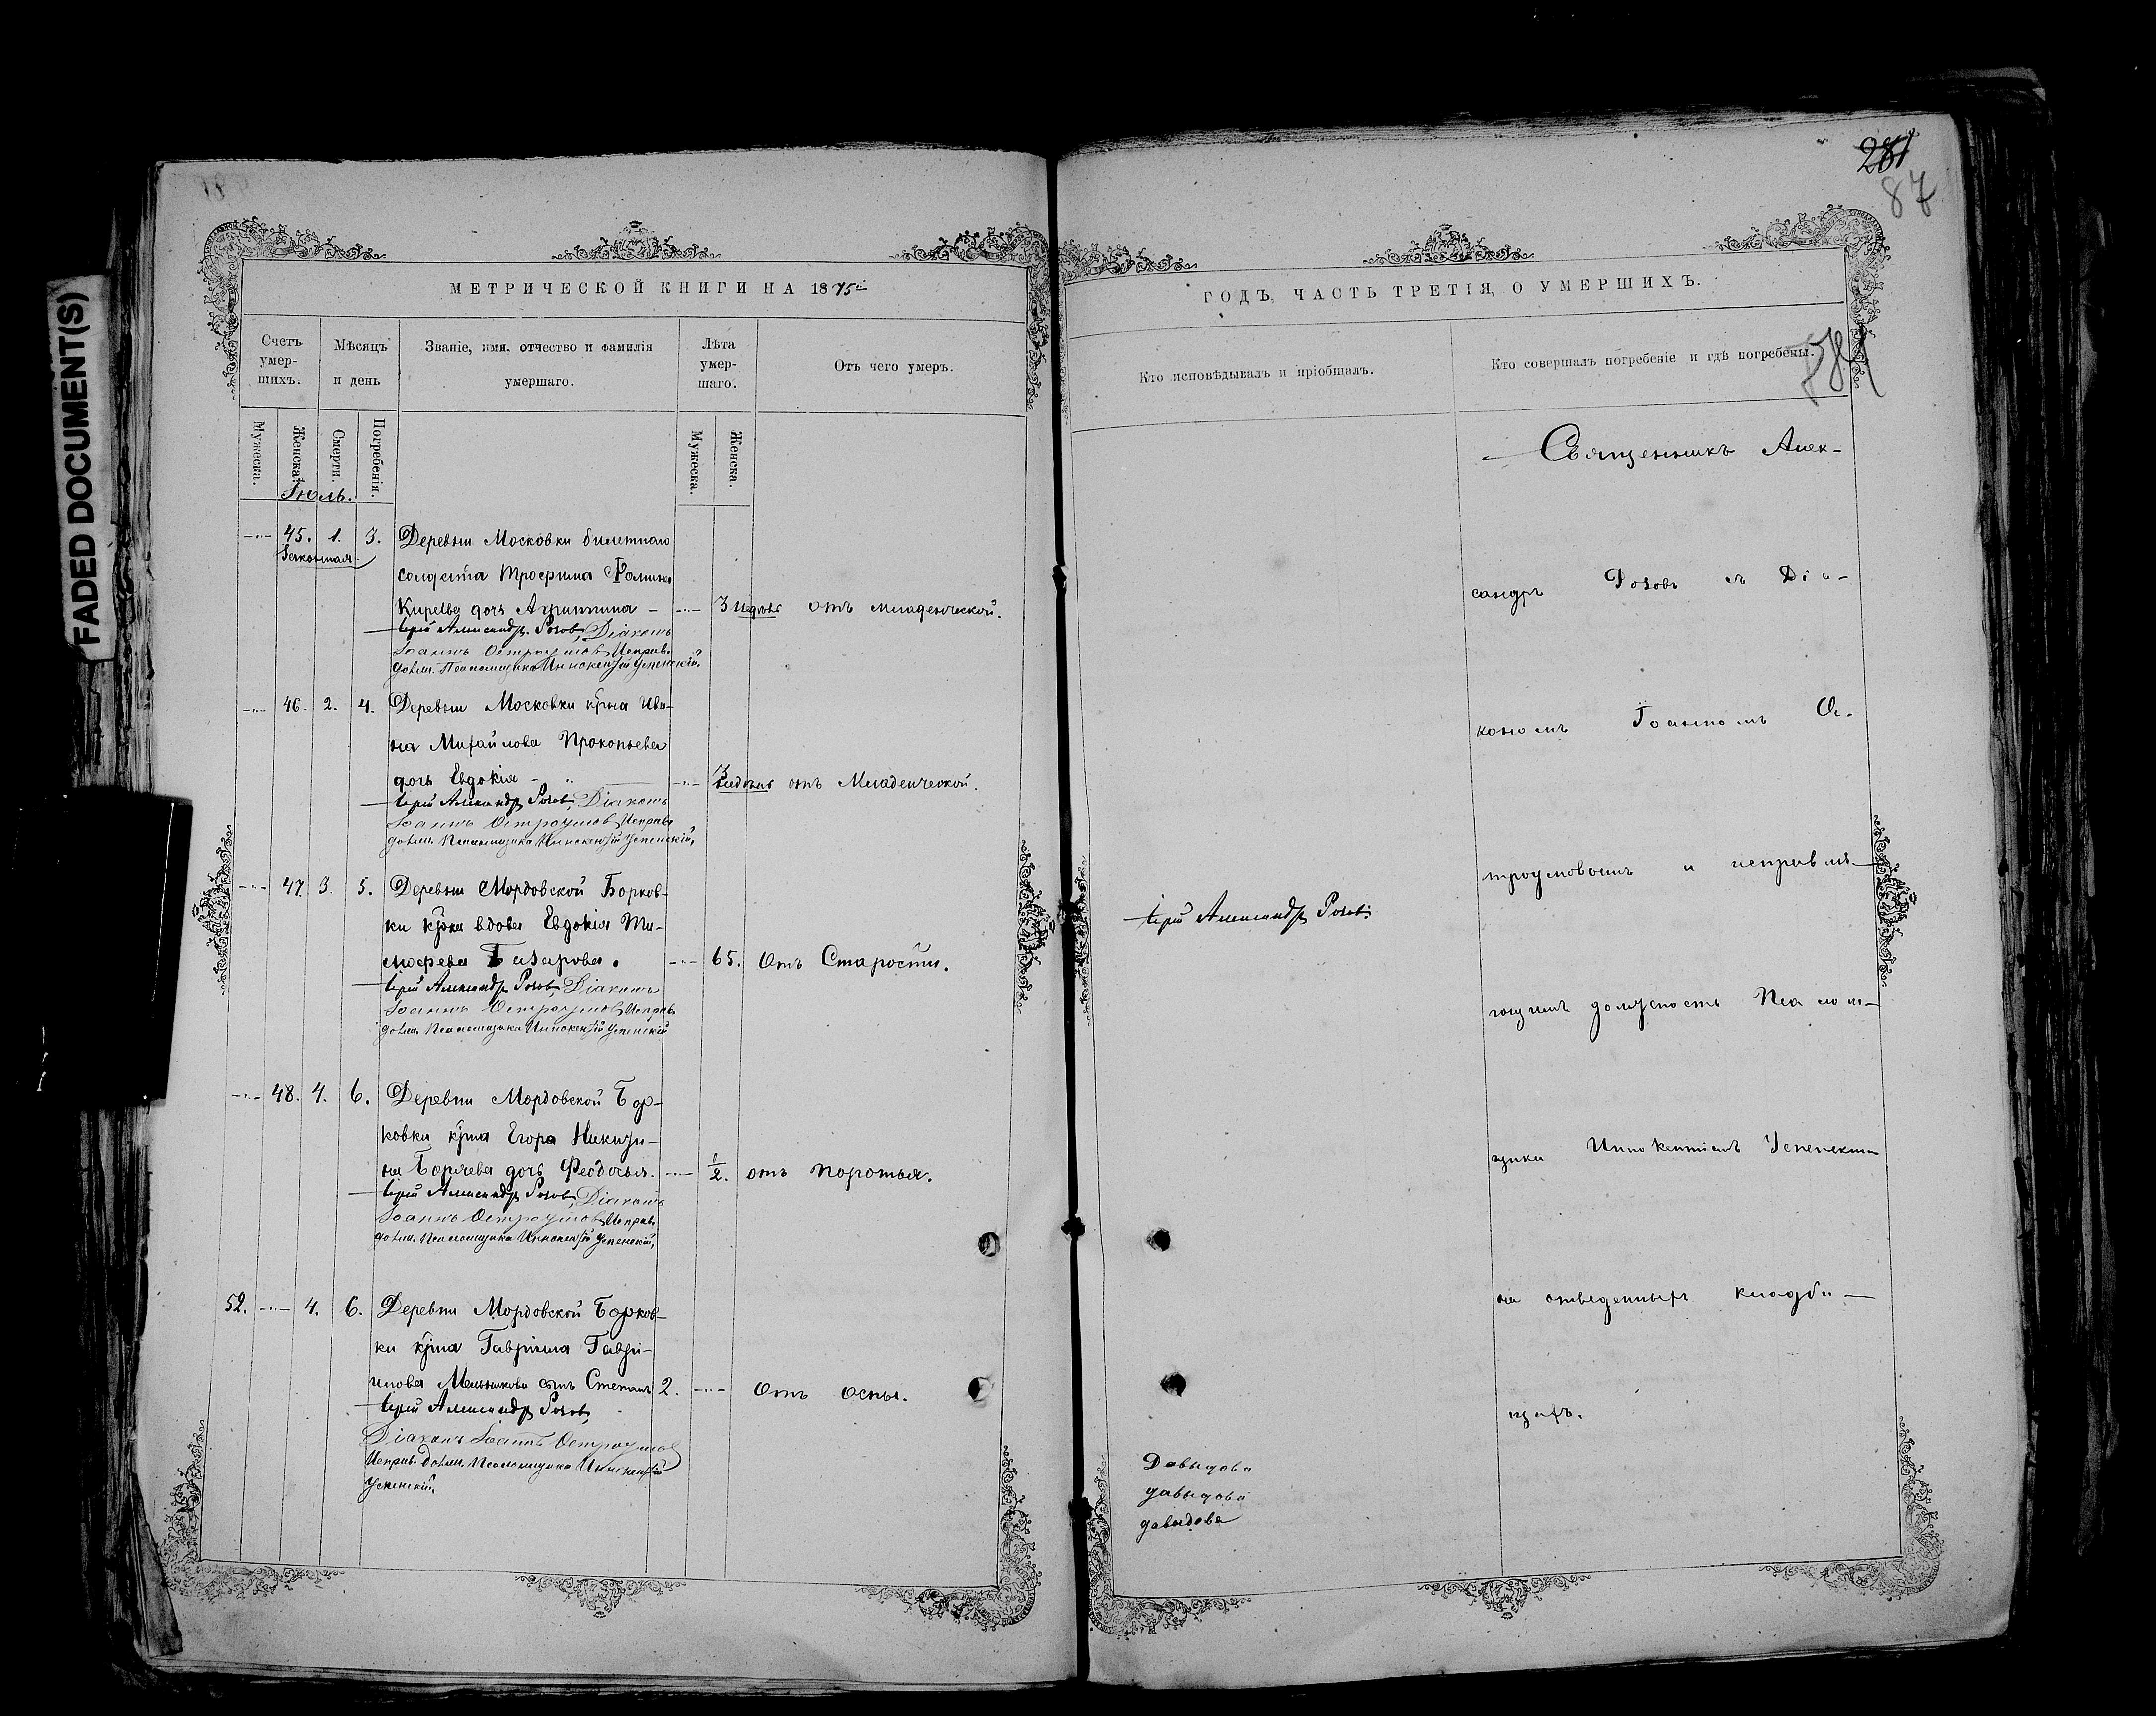 FADED DOCUMENT(S)
МЕТРИЧЕСКОЙ КНИГИ НА 1875й
Счетъ умер-шихъ.
Мѣсяцъ и день
Званіе, имя, отчество и фамилія умершаго.
Лѣта умер-шаго.
Отъ чего умеръ.
Мужеска.
Женска.
Смерти.
Погребенія.
Мужеска.
Женска.
Іюль.
45. 1. 3. Деревни Московки билетнаго
Законная
солдата Трофима Фомина
дочь Агриппина — 3 недѣль отъ младенческой.
Іерей Александръ Розовъ, Діаконъ
Іоаннъ Остроумовъ Исправ.
долж. Псаломщика Иннокентій Успенскій.
46. 2. 4. Деревни Московки кр̃на Ива-
на Михайлова Прокопьева
дочь Евдокія — недѣль отъ Младенческой.
Іерей Александръ Розовъ, Діаконъ
Іоаннъ Остроумовъ Исправ.
долж. Псаломщика Иннокентій Успенскій.
47. 3. 5. Деревни Мордовской Борков-
ки кр̃ка вдова Евдокія Ти-
мофеева Базарова. 65. Отъ Старости.
Іерей Александръ Розовъ, Діаконъ
Іоаннъ Остроумовъ Исправ.
долж. Псаломщика Иннокентій Успенскій
48. 4. 6. Деревни Мордовской Бор-
ковки кр̃на Егора Никити-
на дочь Феодосья. 1/2. отъ поротья.
Іерей Александръ Розовъ, Діаконъ
Іоаннъ Остроумовъ Исправ.
долж. Псаломщика Иннокентій Успенскій,
52. 4. 6. Деревни Мордовской Борков-
ки кр̃на Гавріила Гаврі-
илова Мельникова сынъ Степанъ 2. Отъ оспы.
Іерей Александръ Розовъ,
Діаконъ Іоаннъ Остроумовъ
Исправ. долж. Псаломщика Иннокентій
Успенскій.
281
87
ГОДЪ, ЧАСТЬ ТРЕТІЯ, О УМЕРШИХЪ.
Кто исповѣдывалъ и пріобщалъ.
Кто совершалъ погребеніе и гдѣ погребены.
Священникъ Алек-
сандръ Розовъ съ Діа-
кономъ Іоанномъ Ос-
троумовымъ и исправля-
ющимъ должность Псалом-
щика Иннокентіемъ Успенскимъ
на отведенныхъ кладби-
щахъ.
Іерей Александръ Розовъ
Давыдова
давыдова
давыдова